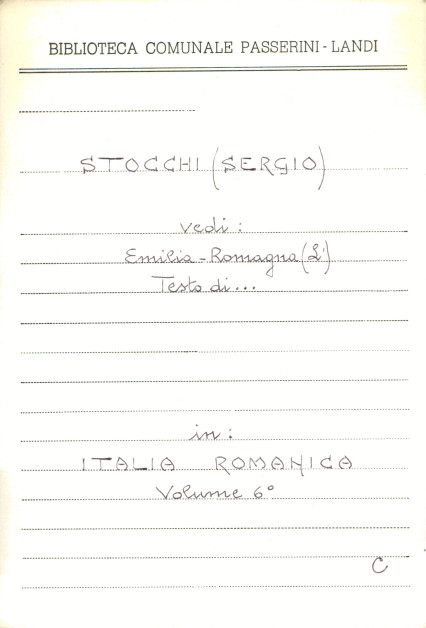 BIBLIOTECA COMUNALE PASSERINI - LANDI
STOCCHI (SERGIO)
vedi :
Emilia - Romagna (L')
Testo di...
in :
ITALIA ROMANICA
Volume 6°
C